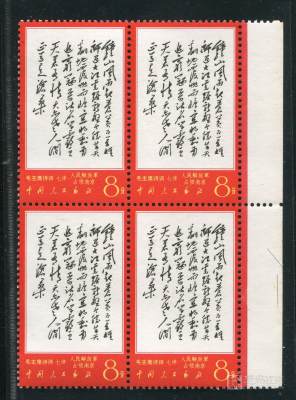 鍾山風雨起蒼黃百万雄
師過大江虎踞龍盤今勝昔天
翻地覆慨而慷宜將剩勇
追窮寇不可沽名學霸王
天若有情天亦老人间
正道是滄桑
毛主席诗词 七律·人民解放军
占领南京
中国人民邮政 8分
鍾山風雨起蒼黃百万雄
師過大江虎踞龍盤今勝昔天
翻地覆慨而慷宜將剩勇
追窮寇不可沽名學霸王
天若有情天亦老人间
正道是滄桑
毛主席诗词 七律·人民解放军
占领南京
中国人民邮政 8分
鍾山風雨起蒼黃百万雄
師過大江虎踞龍盤今勝昔天
翻地覆慨而慷宜將剩勇
追窮寇不可沽名學霸王
天若有情天亦老人间
正道是滄桑
毛主席诗词 七律·人民解放军
占领南京
中国人民邮政 8分
鍾山風雨起蒼黃百万雄
師過大江虎踞龍盤今勝昔天
翻地覆慨而慷宜將剩勇
追窮寇不可沽名學霸王
天若有情天亦老人间
正道是滄桑
毛主席诗词 七律·人民解放军
占领南京
中国人民邮政 8分